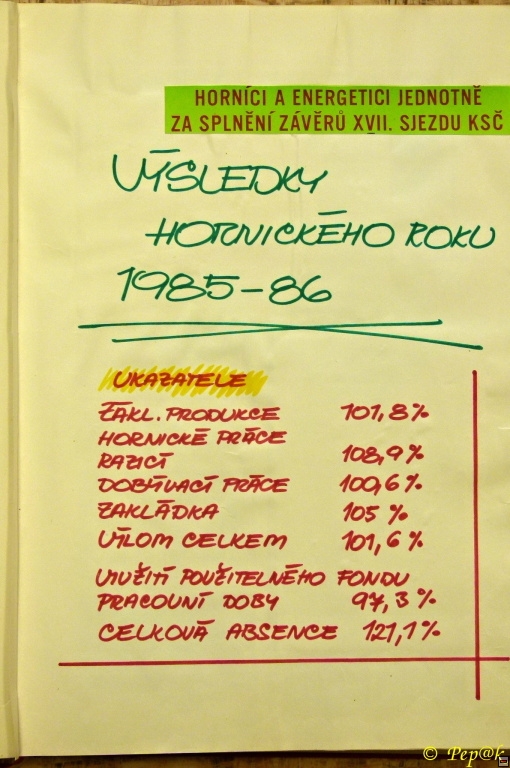 HORNÍCI A ENERGETICI JEDNOTNĚ
ZA SPLNĚNÍ ZÁVĚRŮ XVII. SJEZDU KSČ
VÝSLEDKY
HORNICKÉHO ROKU
1985-86
UKAZATELE
ZÁKL. PRODUKCE 101,8%
HORNICKÉ PRÁCE
RAZICÍ 108,9%
DOBÝVACÍ PRÁCE 100,6%
ZAKLÁDKA 105 %
VÝLOM CELKEM 101,6 %
VYUŽITÍ POUŽITELNÉHO FONDU
PRACOVNÍ DOBY 97,3 %
CELKOVÁ ABSENCE 121,1 %
© Pep@k